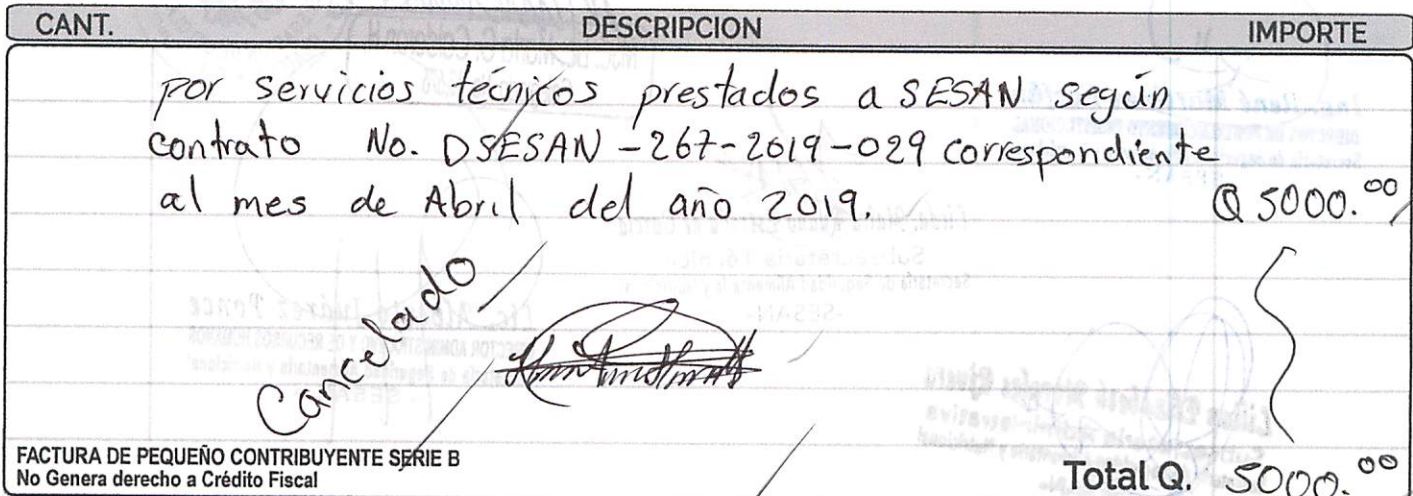 CANT. DESCRIPCION IMPORTE
por servicios técnicos prestados a SESAN según
contrato No. DSESAN-267-2019-029 correspondiente
al mes de Abril del año 2019. Q 5000.00
Cancelado
FACTURA DE PEQUEÑO CONTRIBUYENTE SERIE B
No Genera derecho a Crédito Fiscal
Total Q. 5000.00